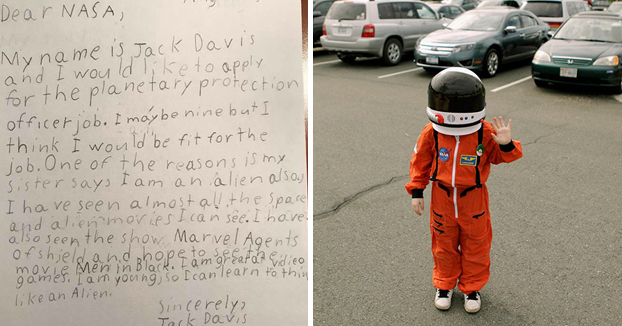 Dear NASA,
My name is Jack Davis
and I would like to apply
for the planetary protection
officer job. I may be nine but I
think I would be fit for the
job. One of the reasons is my
sister says I am an alien also,
I have seen almost all the space
and alien movies I can see. I have
also seen the show Marvel Agents
of shield and hope to see the
movie Men in Black. I am great at video
games. I am young, so I can learn to think
like an Alien.
Sincerely,
Jack Davis
NASA